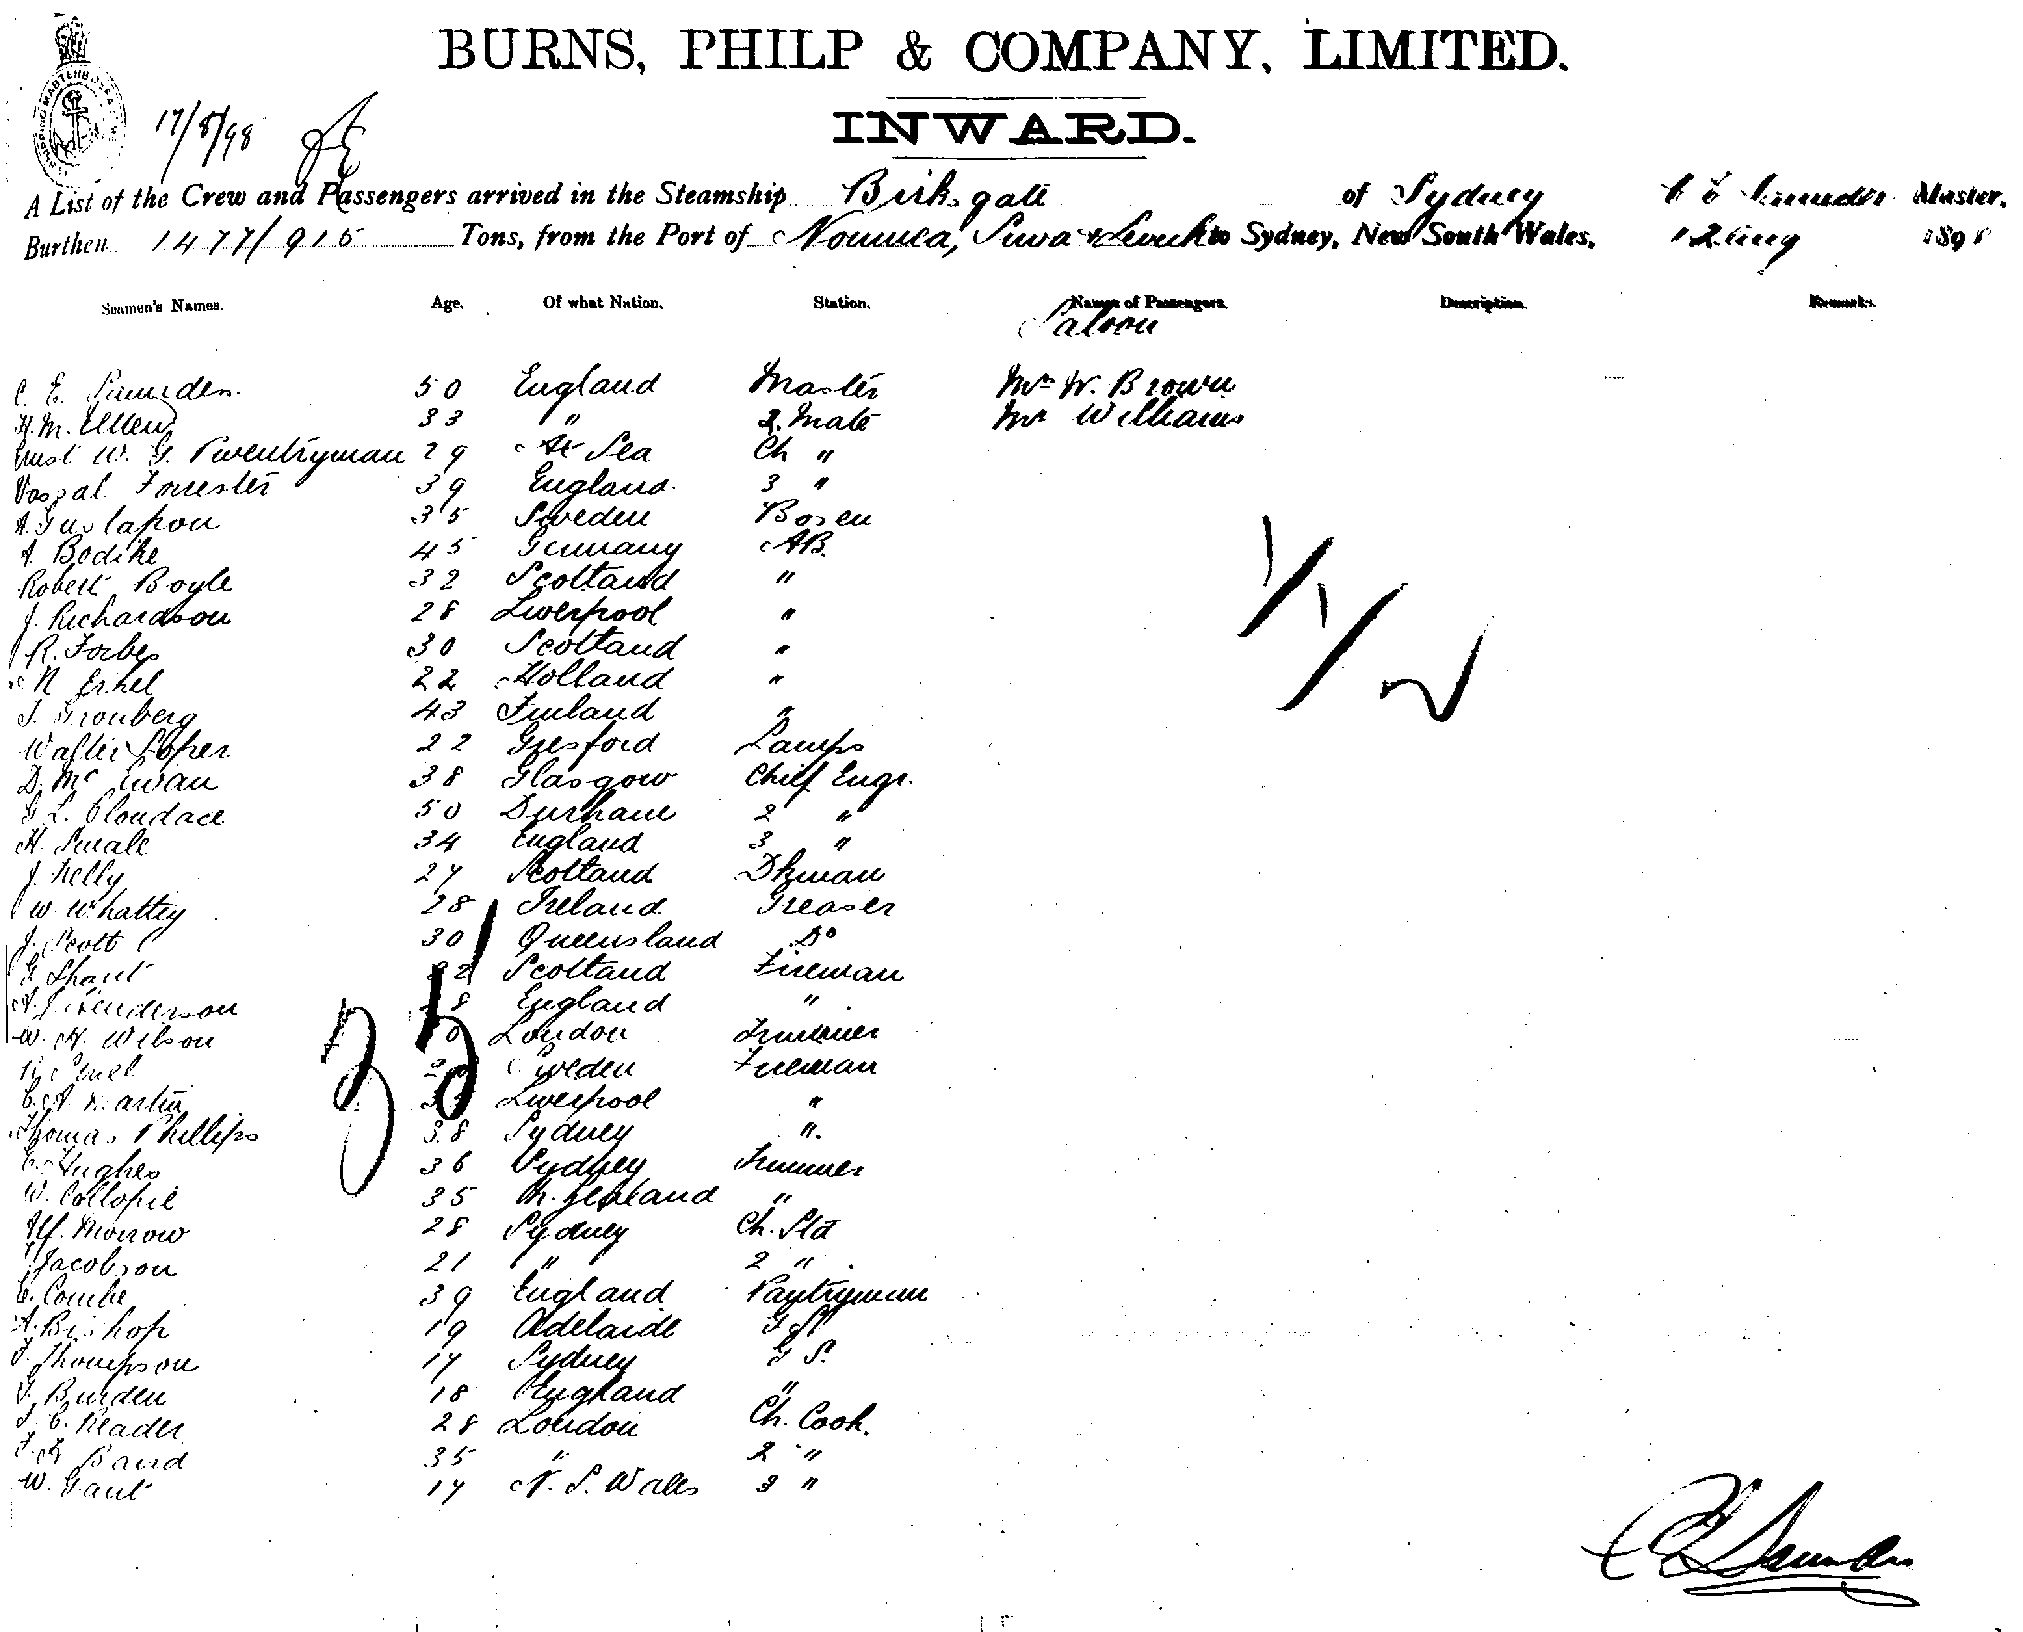 BURNS, PHILP & COMPANY, LIMITED.
INWARD.
17/8/98
A List of the Crew and Passengers arrived in the Steamship Birksgate of Sydney C E Saunders Master,
Burthen 1477/915 Tons, from the Port of Noumea, Suva & Levuka to Sydney, New South Wales, 12 Aug 1898
Seamen's Names. Age. Of what Nation. Station. Names of Passengers. Description. Remarks.
Saloon
C. E. Saunders 50 England Master Mrs W. Brown
H. M. Ellery 33 " 2. Mate Mr Williams
Ernest W. G. Twentyman 29 At Sea Ch "
Forrester 39 England 3 "
A. Gustafson 35 Sweden Bosen
A Bodike 45 Germany AB.
Robert Boyle 32 Scotland "
J. Richardson 28 Liverpool "
R. Forbes 30 Scotland "
N 22 Holland "
J. Gronberg 43 Finland "
Walter Soper 22 Gresford Lamps
D. Mc Ewan 38 Glasgow Chief Engr.
G. L. Ploudace 50 Durham 2 "
H. Smale 34 England 3 "
J. Kelly 27 Scotland Dkman
W Whatley 28 Ireland Greaser
J. Scott 30 Queensland Do
G. Shaut 22 Scotland Fireman
A. J. Henderson 8 England "
W. H. Wilson London Trimmer
Sweden Fireman
C. A Martin Liverpool "
Thomas Phillips 38 Sydney ".
C. Hughes 36 Sydney Trimmer
W. Collopie 35 N. Zealand "
Alf. Morrow 28 Sydney Ch. Std
Jacobson 21 " 2 "
C. Combe 39 England Pantryman
A. Bishop 19 Adelaide G S
F. Thompson 17 Sydney G S.
F. Burden 18 England "
J. C. Reader 28 London Ch. Cook.
F. G Baird 35 " 2 "
W. Gaut 17 N. S. Wales 3 "
35
1/1/2
C E Saunders